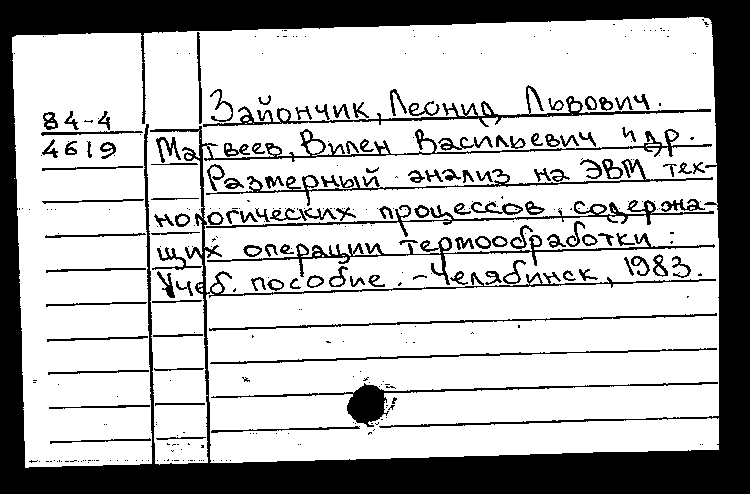 Зайончик, Леонид Львович.
84-4
4619 Матвеев, Вилен Васильевич и др.
Размерный анализ на ЭВМ тех-
нологических процессов, содержа-
щих операции термообработки:
Учеб. пособие. - Челябинск, 1983.